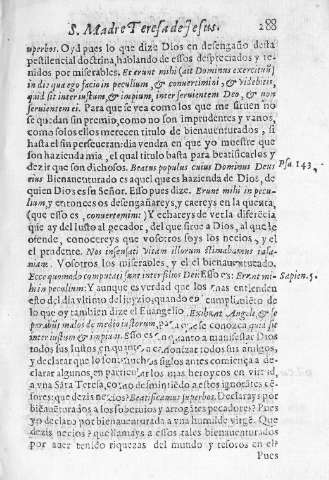 S. Madre Teresa de Jesus. 288
uperbos. Oyd pues lo que dize Dios en desengaño desta
pestilencial doctrina, hablando de essos despreciados y te-
nidos por miserables. Et erunt mihi (ait Dominus exercituũ)
in die qua ego facio in peculium, & convertimini, & videbitis,
quid sit inter iustum, & impium, inter servientem Deo, & non
servientem ei. Para que se vea como los que me siruen no
se quedan sin premio, como no son imprudentes y vanos,
como solos ellos merecen titulo de bienauenturados, si
hasta el fin perseueran: dia vendra en que yo muestre que
son hazienda mia, el qual titulo basta para beatificarlos y
dezir que son dichosos. Beatus populus cuius Dominus Deus Psa. 143.
eius Bienauenturado es aquel que es hazienda de Dios, de
quien Dios es su Señor. Esso pues dize. Erunt mihi in pecu-
lium, y entonces os desengañareys, y caereys en la cuenta,
(que esso es, convertemini:) Y echareys de ver la diferẽcia
que ay del justo al pecador, del que sirue a Dios, al que le
ofende, conocereys que vosotros soys los necios, y el
el prudente. Nos insensati vitam illorum stimabamus insa-
niam. Vosotros los miserables, y el el bienauenturado.
Ecce quomodo computati sunt inter filios Dei: Esso es: Erunt mi- Sapien. 5.
hi in peculium: Y aunque es verdad que los mas entienden
esto del dia vltimo del juyzio, quando en cumplimiẽto de
lo que oy tambien dize el Euangelio. Exibunt Angeli, & se
parabũt malos de medio iustorum, para que se conozca quid sit
inter iustum & impium. Esso es en quanto a manifestar Dios
todos sus justos, en quanto a canonizar todos sus amigos,
y declarar que lo son, muchos siglos antes comiença a de
clarar algunos, en particular los mas heroycos en virtud,
a vna Sãta Teresa, como desmintiẽdo a estos ignorãtes cẽ-
sores: que dezis necios? Beatificamus superbos. Declarays por
bienauẽturados a los soberuios y arrogãtes pecadores? Pues
yo declaro por bienauenturada a vna humilde virgẽ. Que
dezis necios? que llamays a essos tales bienauenturados
por auer tenido riquezas del mundo y tesoros en el?
Pues